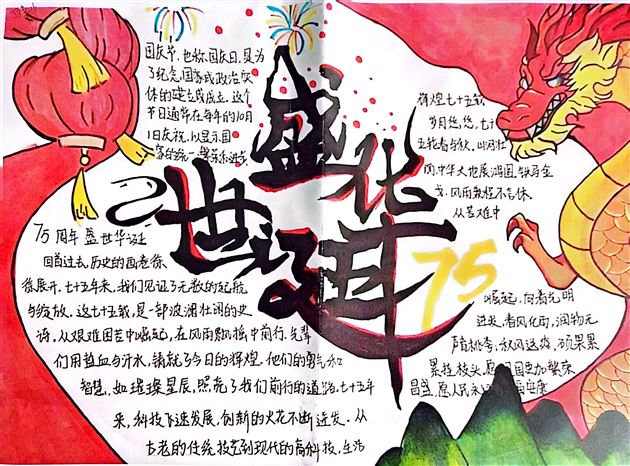 国庆节,也称国庆日,是为
了纪念国家或政治实
体的建立或成立,这个
节日通常在每年的10月
1日庆祝,以显示国
家的统一、繁荣和进步
盛世华诞
75
75周年盛世华诞
回首过去,历史的画卷徐
徐展开,七十五年来,我们见证了无数的起航
与绽放。这七十五载,是一部波澜壮阔的史
诗,从艰难困苦中崛起,在风雨飘摇中前行,先辈
们用热血与汗水,铸就了今日的辉煌。他们的勇气和
智慧,如璀璨星辰,照亮了我们前行的道路,七十五年
来,科技飞速发展,创新的火花不断迸发。从
古老的传统技艺到现代的高科技,生活
辉煌七十五载
岁月悠悠,七十
五轮春与秋,山河壮
阔,中华大地展鸿图,铁马金
戈,风雨兼程不言休
从苦难中
崛起,向着光明
进发,春风化雨,润物无
声,桃李,秋风送爽,硕果累
累挂枝头,愿国更加繁荣
昌盛,愿人民永远幸福安康